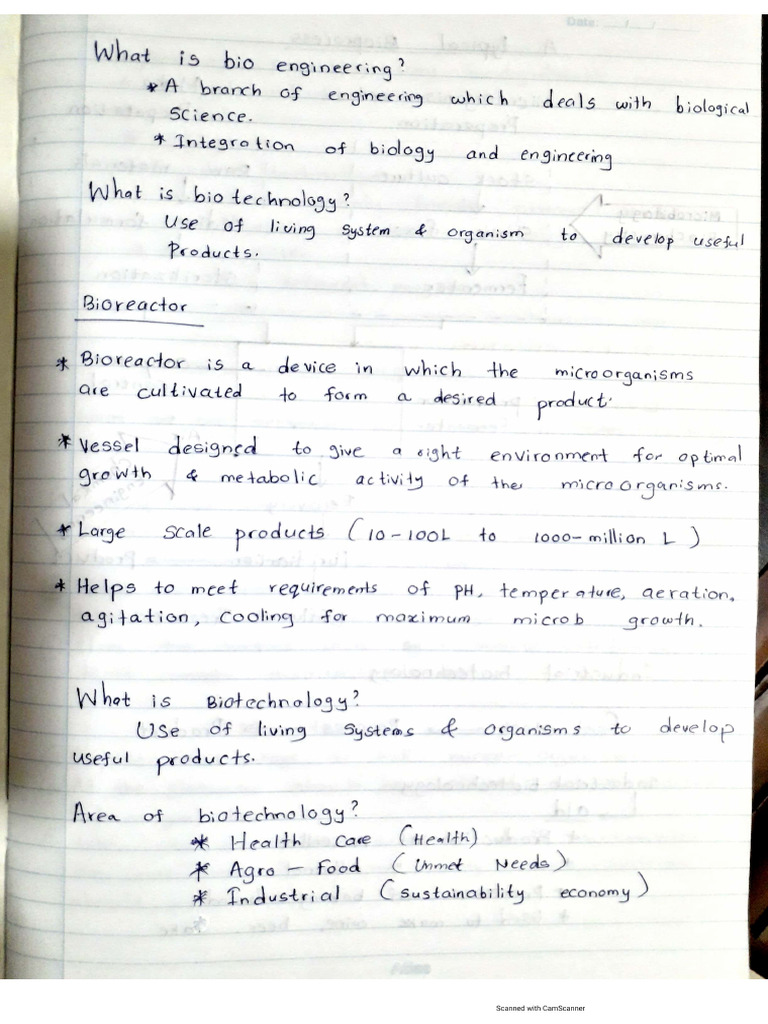 Date:
What is bio engineering?
* A branch of engineering which deals with biological
science.
* Integration of biology and engineering
What is bio technology?
Use of living system & organism to develop useful
Products.
Bioreactor
* Bioreactor is a device in which the microorganisms
are cultivated to form a desired product.
* Vessel designed to give a right environment for optimal
growth & metabolic activity of the microorganisms.
* Large scale products (10-100L to 1000-million L)
* Helps to meet requirements of PH, temperature, aeration,
agitation, cooling for maximum microb growth.
What is Biotechnology?
Use of living systems & organisms to develop
useful products.
Area of biotechnology?
* Health care (Health)
* Agro - Food (Unmet Needs)
* Industrial (sustainability economy)
Scanned with CamScanner